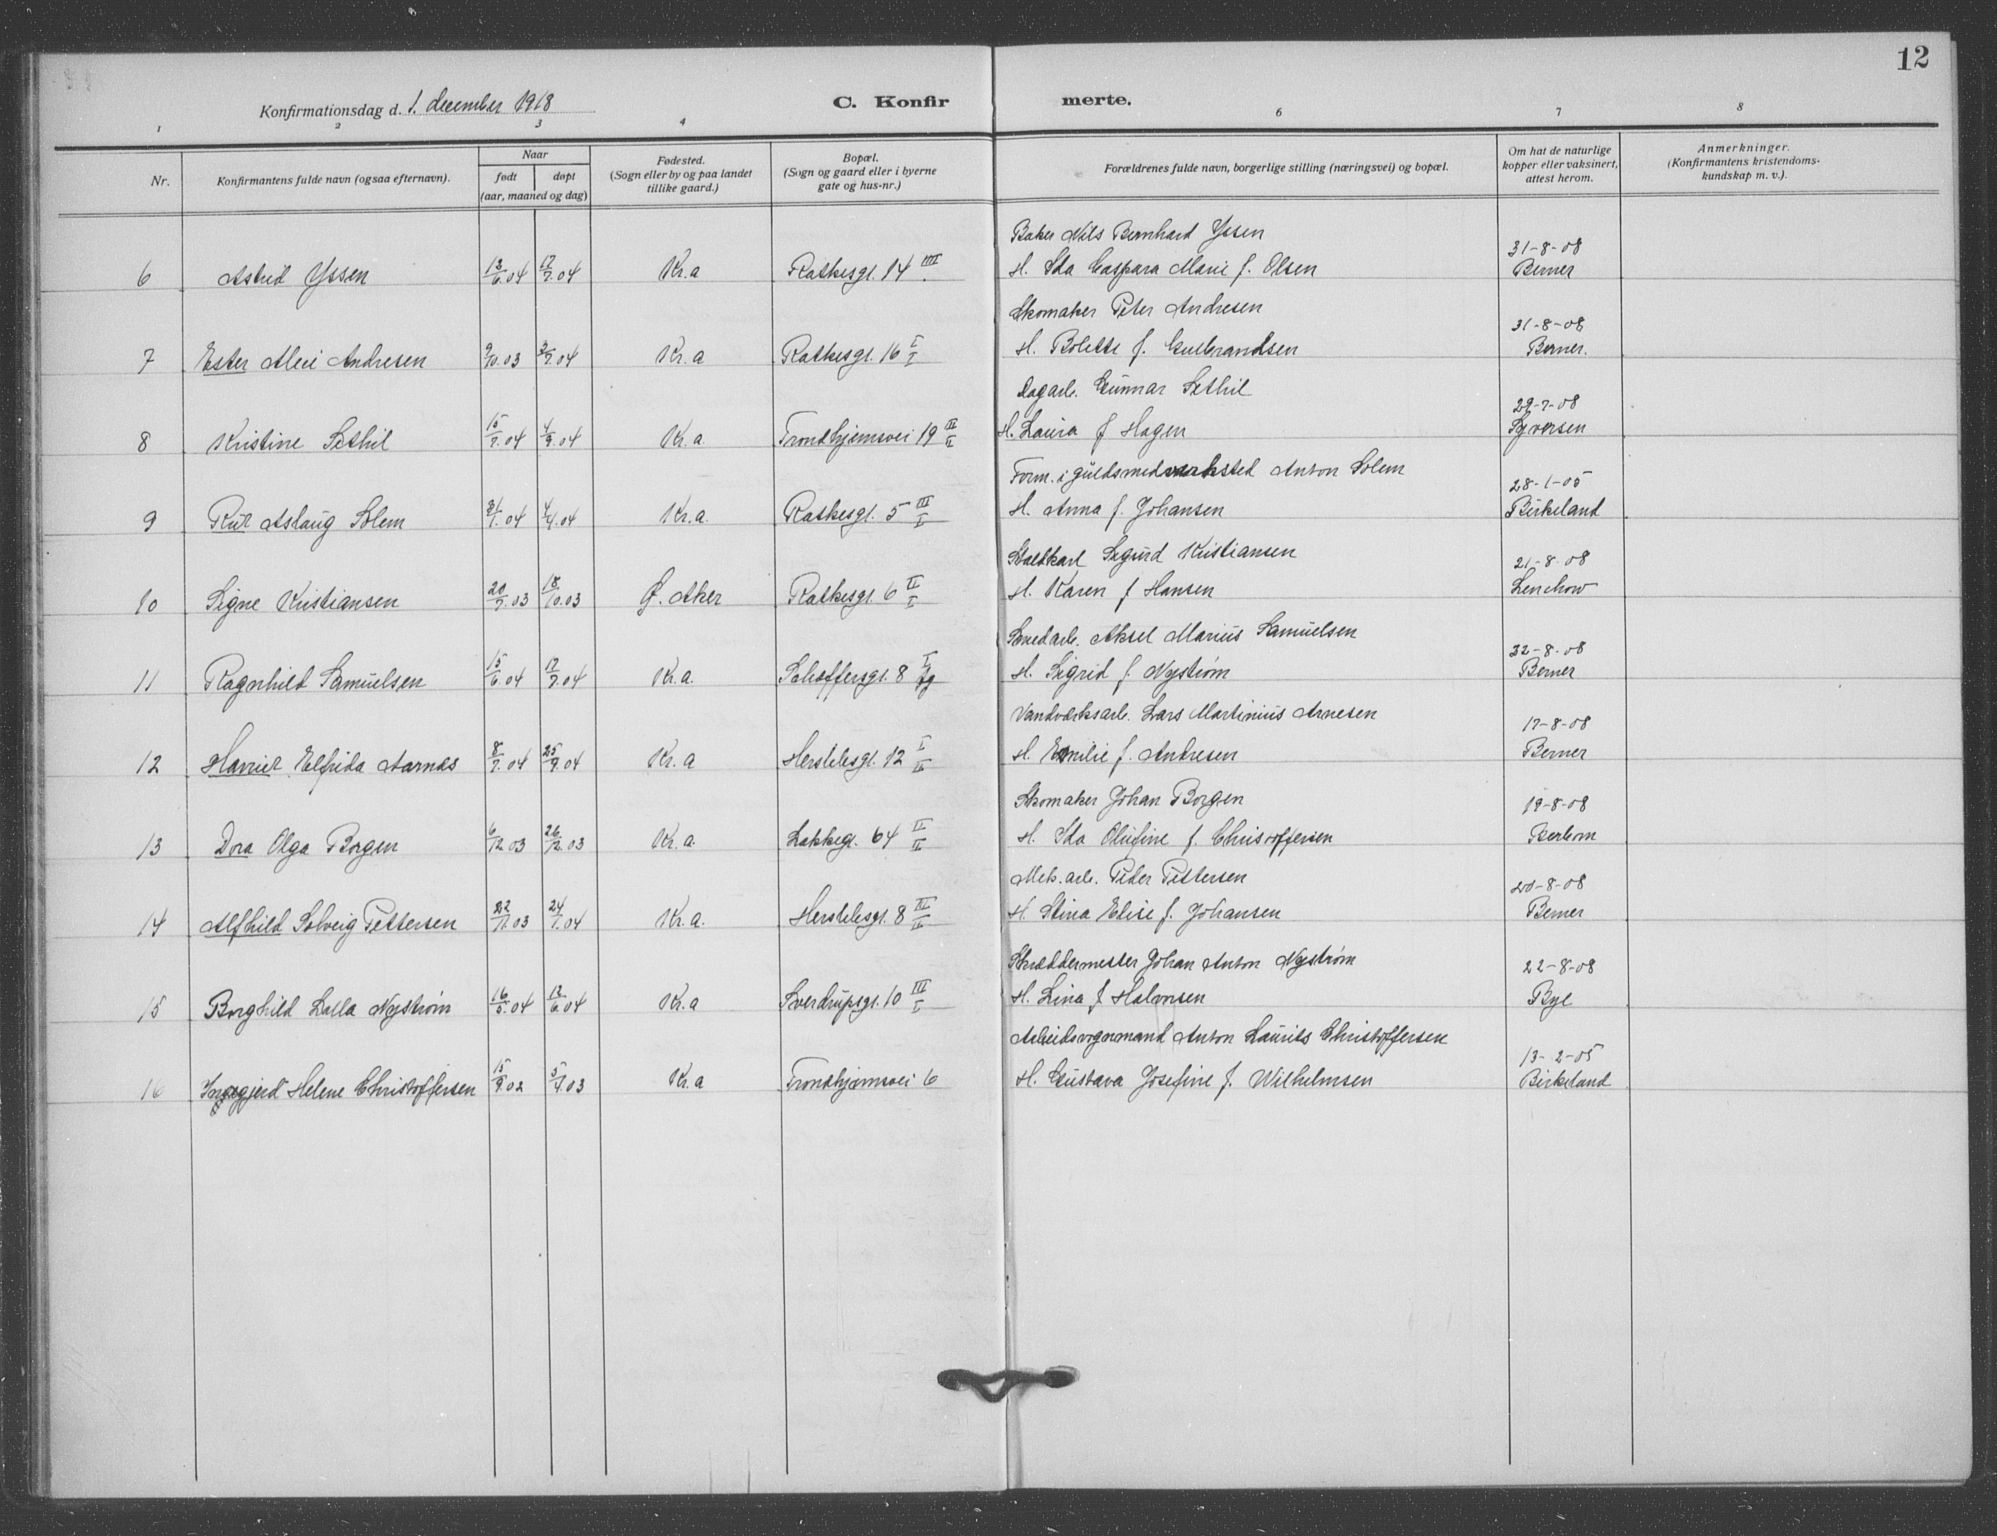 12
Konfirmationsdag d. 1. december 1918
C. Konfirmerte.
1 2 3 4 6 7 8
Nr.
Konfirmantens fulde navn (ogsaa efternavn).
Naar
født døpt
(aar, maaned og dag)
Fødested.
(Sogn eller by og paa landet
tillike gaard.)
Bopæl.
(Sogn og gaard eller i byerne
gate og hus-nr.)
Forældrenes fulde navn, borgerlige stilling (næringsvei) og bopæl.
Om hat de naturlige
kopper eller vaksinert,
attest herom.
Anmerkninger.
(Konfirmantens kristendoms-
kundskap m. v.).
Baker Nils Bernhard Yssen 31-8-08
6 Astrid Yssen 13/6.04 17/7.04 Kr.a Rathkesgt. 14 IIII H. Ida Caspara Marie f. Olsen Berner
Skomaker Peter Andresen 31-8-08
7 Ester Alice Andresen 9/10.03 3/7.04 Kr.a Rathkesgt. 16 I/I H. Bolette f. Gulbrandsen Berner.
Dagarb. Gunnar Sethil 29-7-08
8 Kristine Sethil 15/7.04 4/9.04 Kr.a. Trondhjemsvei 19 III/II H. Laura f Hagen Syversen
Form. i guldsmedverksted Anton Solem 28-1-05
9 Rut Aslaug Solem 31/1.04 4/4.04 Kr.a. Rathkesgt. 5 III/I H. Anna f. Johansen Birkeland
Staldkarl Sigurd Kristiansen 21-8-08
10 Signe Kristiansen 20/7.03 18/10.03 Ø. Aker Rathkesgt. 6 II/I H. Karen f Hansen Lenchow
Smedarb. Aksel Marius Samuelsen 22-8-08
11 Ragnhild Samuelsen 15/6.04 17/7.04 Kr.a. Schæffersgt. 8 H. Sigrid f. Nystrøm Berner
Vandværksarb. Lars Martinius Arnesen 17-8-08
12 Harriet Elfrida Aarnæs 8/7.04 25/9.04 Kr.a Herslebsgt. 12 I/II H. Emilie f. Andresen Berner
Skomaker Johan Borgen 19-8-08
13 Dora Olga Borgen 6/12.03 26/12.03 Kr.a. Lakkegt. 64 II/II H. Ida Olufine f. Christoffersen Berbom
Mek.arb. Peder Pettersen 20-8-08
14 Alfhild Solveig Pettersen 22/11.03 24/1.04 Kr.a. Herslebsgt. 8 III/II H. Stina Elise f. Johansen Berner
Skræddermester Johan Anton Nystrøm 22-8-08
15 Borghild Lalla Nystrøm 16/5.04 12/6.04 Kr.a Sverdrupsgt. 10 III/I H. Lina f Halvorsen Bye
Arbeidsvognmand Anton Laurits Christoffersen 13-2-05
16 Ingegjerd Helene Christoffersen 15/9.02 5/4.03 Kr.a Trondhjemsvei 6 H. Gustava Josefine f. Wilhelmsen Birkeland